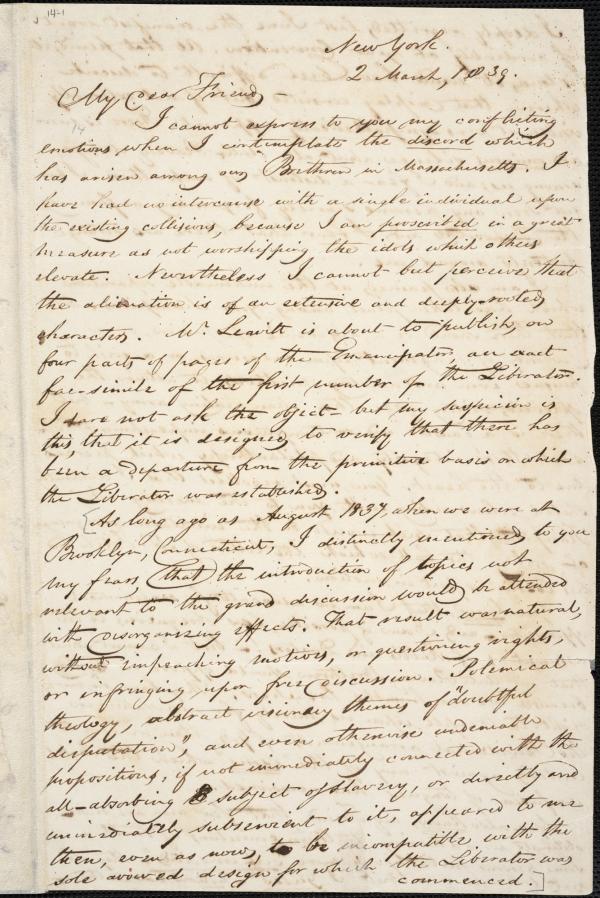 14-1
New York.
2 March, 1839.
My Dear Friend,
I cannot express to you my conflicting
emotions when I contemplate the discord which
has arisen among our Brethren in Massachusetts. I
have had no intercourse with a single individual upon
the existing collisions, because I am proscribed in a great
measure as not worshipping the idols which others
elevate. Nevertheless I cannot but perceive that
the alienation is of an extensive and deeply-rooted
character. Mr. Leavitt is about to publish, on
four parts of pages of the Emancipator, an exact
fac-simile of the first number of the Liberator.
I dare not ask the object - but my suspicion is
this, that it is designed to verify that there has
been a departure from the primitive basis on which
the Liberator was established.
[As long ago as August 1837, when we were at
Brooklyn, Connecticut, I distinctly mentioned to you
my fears, that the introduction of topics not
relevant to the grand discussion would be attended
with disorganizing effects. That result was natural,
without impeaching motives, or questioning rights,
or infringing upon free discussion. Polemical
theology, abstract visionary themes of "doubtful
disputation", and even otherwise undeniable
propositions, if not immediately connected with the
all-absorbing subject of slavery, or directly and
immediately subservient to it, appeared to me
then, even as now, to be incompatible with the
sole avowed design for which the Liberator was
commenced.]